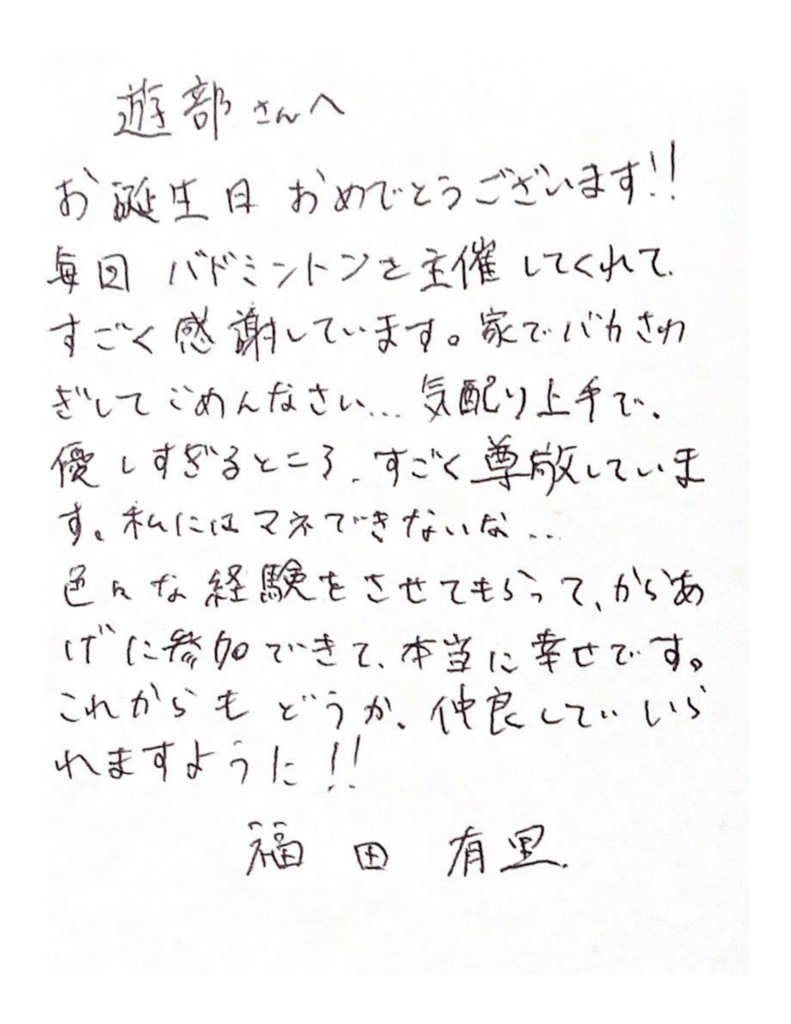 遊部さんへ
お誕生日 おめでとうございます!!
毎回 バドミントンを主催してくれて、
すごく感謝しています。家でバカさわ
ぎしてごめんなさい... 気配り上手で、
優しすぎるところ、すごく尊敬していま
す。私にはマネできないな...
色々な経験をさせてもらって、からあ
げに参加できて、本当に幸せです。
これからも どうか、仲良していいら
れますように!!
福田 有里